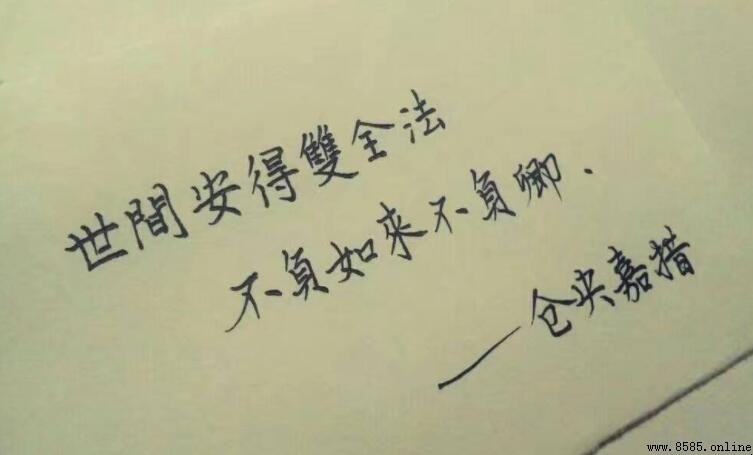 世間安得雙全法
不負如來不負卿.
—仓央嘉措
www.8585.online